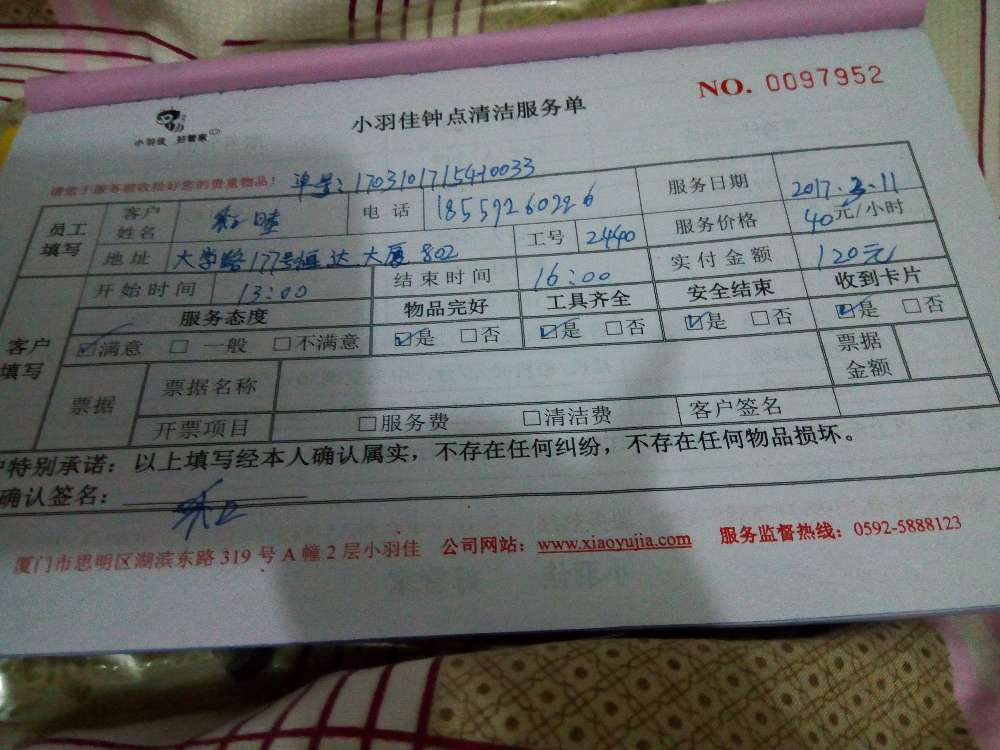 NO. 0097952
小羽佳 好管家
小羽佳钟点清洁服务单
请您于服务前收拾好您的贵重物品！ 单号：1703101715410033
员工填写 客户姓名 电话 18559260226 服务日期 2017.3.11
地址 大学路177号恒达大厦802 工号 2440 服务价格 40元/小时
开始时间 13:00 结束时间 16:00 实付金额 120元
客户填写 服务态度 物品完好 工具齐全 安全结束 收到卡片
☑满意 □一般 □不满意 ☑是 □否 ☑是 □否 ☑是 □否 ☑是 □否
票据 票据名称 票据金额
开票项目 □服务费 □清洁费 客户签名
户特别承诺：以上填写经本人确认属实，不存在任何纠纷，不存在任何物品损坏。
确认签名：
厦门市思明区湖滨东路 319 号 A 幢 2 层小羽佳 公司网站：www.xiaoyujia.com 服务监督热线：0592-5888123